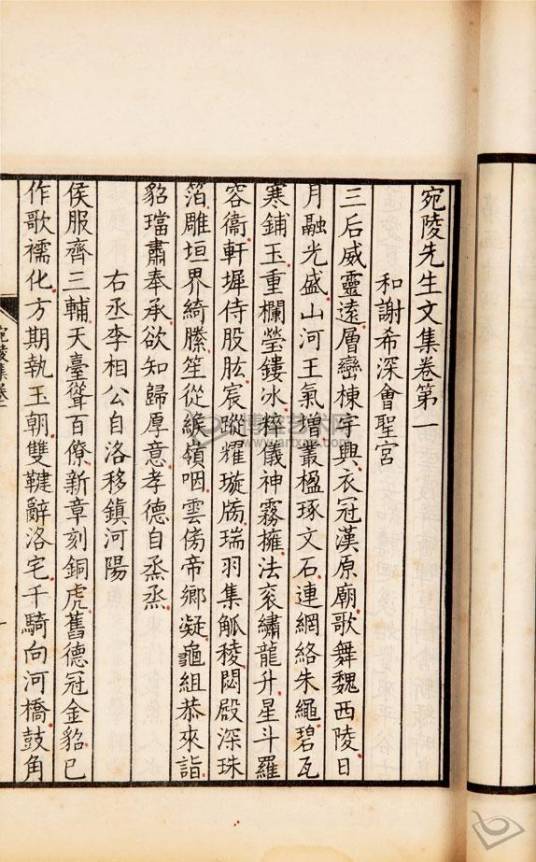 宛陵先生文集卷第一
和謝希深會聖宮
三后威靈遠層巒棟宇興衣冠漢原廟歌舞魏西陵日
月融光盛山河王氣增叢楹琢文石連網絡朱繩碧瓦
寒鋪玉重欄瑩鏤冰粹儀神霧擁法衮繡龍升星斗羅
容衞軒墀侍股肱宸蹤耀璇牓瑞羽集觚稜閟殿深珠
箔雕垣界綺縢笙從緱嶺咽雲傍帝鄉凝龜組恭來詣
貂璫肅奉承欲知歸厚意孝德自烝烝
右丞李相公自洛移鎮河陽
侯服齊三輔天臺聳百僚新章刻銅虎舊德冠金貂已
作歌襦化方期執玉朝雙鞬辭洛宅千騎向河橋鼓角
宛陵集卷一